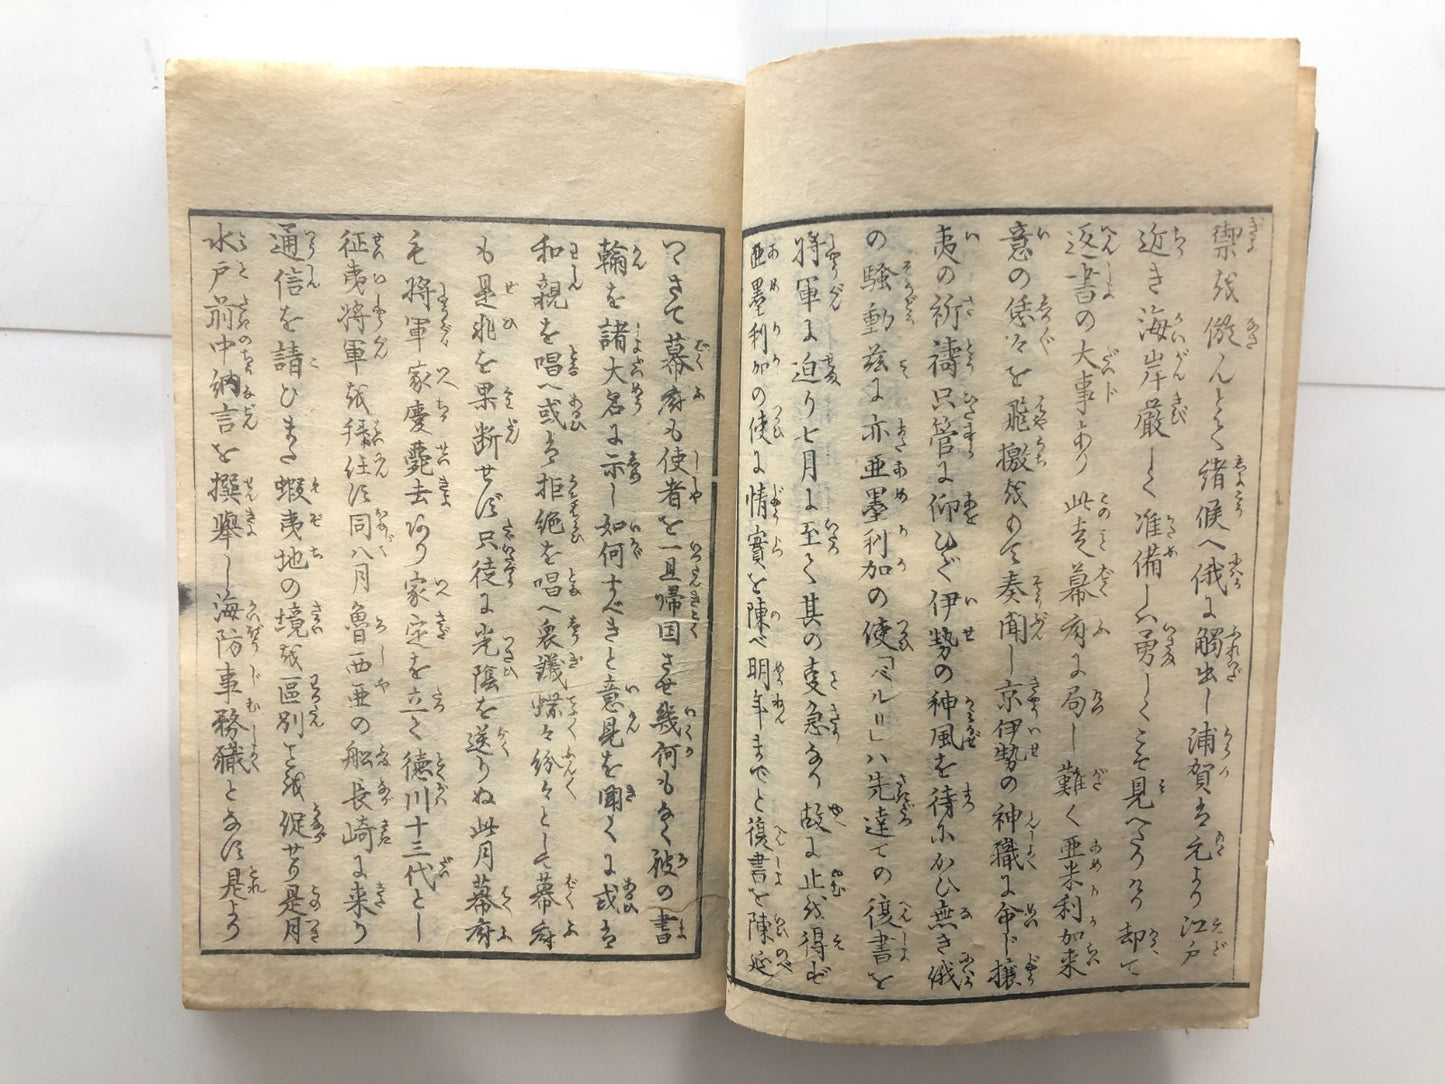 禦を儆んとて諸候へ俄に觸出し浦賀は元より江戸
近き海岸嚴しく准備しハ勇しくこそ見へたりける却て
返書の大事あり此走幕府に局し難く亜米利加来
意の恁々を飛檄をもて奏聞し京伊勢の神職に命ト攘
夷の祈禱只管に仰ひで伊勢の神風を待にかひ無き俄
の騒動茲に亦亜墨利加の使「ペルリ」ハ先達ての復書を
将軍に迫り七月に至て其の㕝急なり故に止を得ず
亜墨利加の使に情實を陳べ明年までと復書を陳延
つさて幕府も使者を一旦帰国させ幾何もなく彼の書
翰を諸大名に示し如何すべきと意見を聞くに或は
和親を唱へ或は拒絶を唱へ衆議蝶々紛々として幕府
も是非を果断せず只徒に光陰を送りぬ此月幕府
も将軍家慶薨去あり家定を立て徳川十三代とし
征夷将軍を拜任す同八月魯西亜の船長崎に来り
通信を請ひまた蝦夷地の境を區別さを促せり是月
水戸前中納言を撰擧し海防事務職となす是より